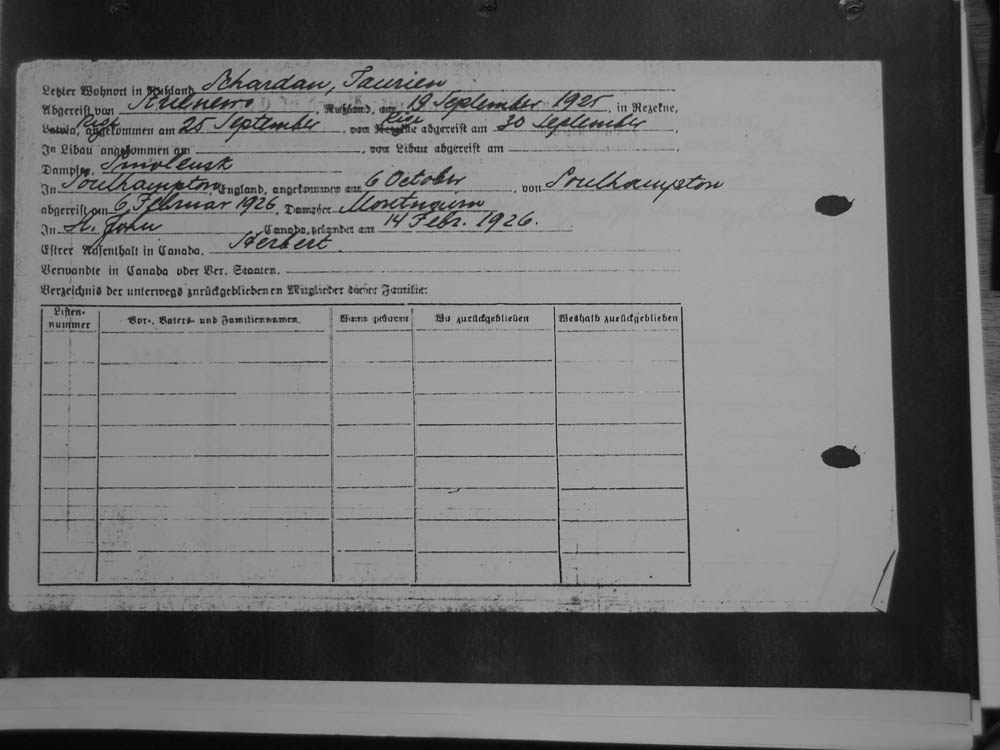 Letzter Wohnort in Rußland Schardau, Taurien
Abgereist von , Rußland, am 19 September 1925, in Rezekne,
Latvia, Riga angekommen am 25 September, von Rezekne Riga abgereist am 30 September,
In Libau angekommen am , von Libau abgereist am
Dampfer, Smolensk
In Southampton, England, angekommen am 6 October, von Southampton
abgereist am 6 Februar 1926, Dampfer
In St. John Canada, gelandet am 14 Febr. 1926.
Erster Aufenthalt in Canada. Herbert.
Verwandte in Canada oder Ver. Staaten.
Verzeichnis der unterwegs zurückgebliebenen Mitglieder dieser Familie:
Listen-nummer Vor-, Vaters- und Familiennamen. Wann geboren Wo zurückgeblieben Weshalb zurückgeblieben